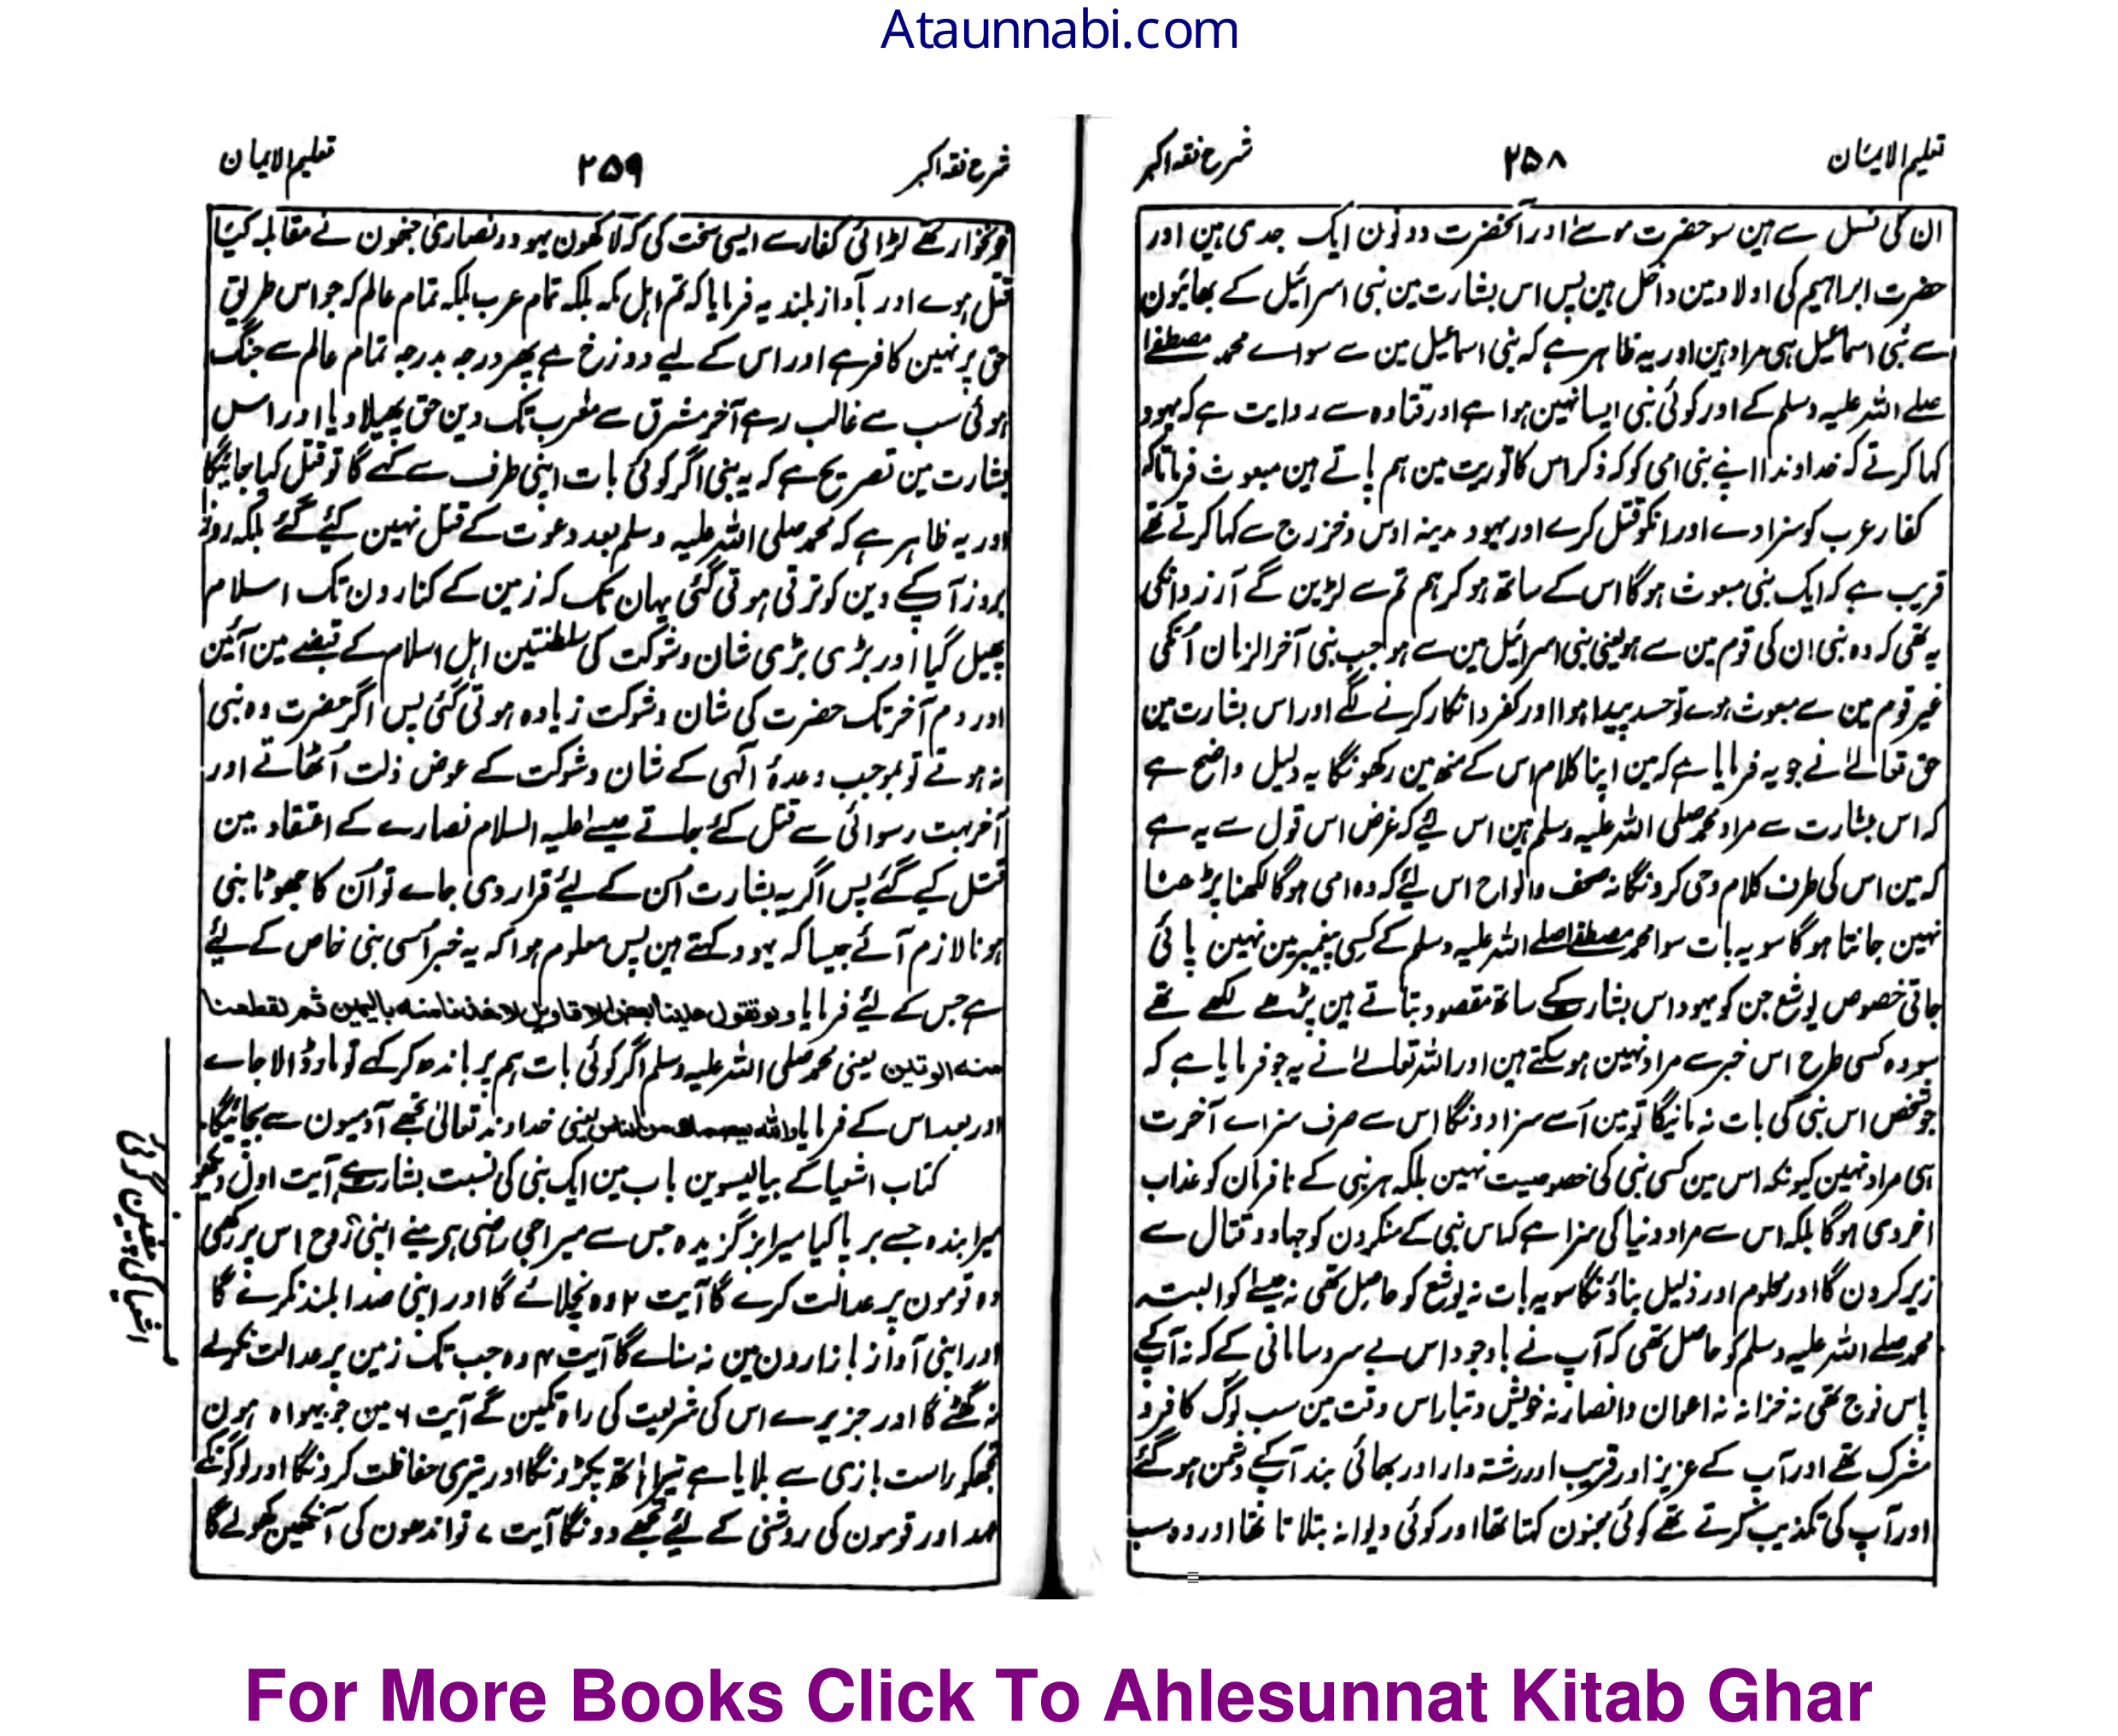 Ataunnabi.com
تعلیم الایمان ۲۵۸ شرح فقہ اکبر
ان کی نسل سے ہین سو حضرت موسےٰ اور آنحضرت دونون ایک جدی ہین اور
حضرت ابراہیم کی اولاد مین داخل ہین پس اس بشارت مین بنی اسرائیل کے بھائیون
سے بنی اسماعیل ہی مراد ہین اور یہ ظاہر ہے کہ بنی اسماعیل مین سے سواے محمد مصطفےٰ
صلے اللہ علیہ وسلم کے اور کوئی نبی ایسا نہین ہوا ہے اور قتادہ سے روایت ہے کہ یہود
کہا کرتے کہ خداوندا اپنے نبی امی کو کہ ذکر اس کا توریت مین ہم پاتے ہین مبعوث فرما تاکہ
کفار عرب کو سزا دے اور انکو قتل کرے اور یہود مدینہ اوس و خزرج سے کہا کرتے تھے
قریب ہے کہ ایک نبی مبعوث ہوگا اس کے ساتھ ہو کر ہم تم سے لڑین گے آرزو انکی
یہ تھی کہ وہ نبی ان کی قوم مین سے ہو یعنی بنی اسرائیل مین سے ہو جب نبی آخر الزمان انکی
غیر قوم مین سے مبعوث ہوے تو حسد پیدا ہوا اور کفر و انکار کرنے لگے اور اس بشارت مین
حق تعالےٰ نے جو یہ فرمایا ہے کہ مین اپنا کلام اس کے منھ مین رکھونگا یہ دلیل واضح ہے
کہ اس بشارت سے مراد محمد صلی اللہ علیہ وسلم ہین اس لیے کہ غرض اس قول سے یہ ہے
کہ مین اس کی طرف کلام وحی کرونگا نہ صحف و الواح اس لیے کہ وہ امی ہوگا لکھنا پڑھنا
نہین جانتا ہوگا سو یہ بات سوا محمد مصطفےٰ صلے اللہ علیہ وسلم کے کسی پیغمبر مین نہین پائی
جاتی خصوص یوشع جن کو یہود اس بشارت کے ساتھ مقصود بتاتے ہین پڑھے لکھے تھے
سو وہ کسی طرح اس خبر سے مراد نہین ہو سکتے ہین اور اللہ تعالےٰ نے یہ جو فرمایا ہے کہ
جو شخص اس نبی کی بات نہ مانیگا تو مین اُسے سزا دونگا اس سے صرف سزاے آخرت
ہی مراد نہین کیونکہ اس مین کسی نبی کی خصوصیت نہین بلکہ ہر نبی کے نافرمان کو عذاب
اخروی ہوگا بلکہ اس سے مراد دنیا کی سزا ہے کہ اس نبی کے منکرون کو جہاد و قتال سے
زیر کرون گا اور محکوم اور ذلیل بناؤنگا سو یہ بات نہ یوشع کو حاصل تھی نہ عیسےٰ کو البتہ
محمد صلے اللہ علیہ وسلم کو حاصل تھی کہ آپ نے باوجود اس بے سروسامانی کے کہ نہ آپکے
پاس فوج تھی نہ خزانہ نہ اعوان و انصار نہ خویش و تبار اس وقت مین سب لوگ کافر و
مشرک تھے اور آپ کے عزیز اور قریب اور رشتہ دار اور بھائی بند آپکے دشمن ہو گئے
اور آپ کی تکذیب کرتے تھے کوئی مجنون کہتا تھا اور کوئی دیوانہ بتلاتا تھا اور وہ سب
شرح فقہ اکبر ۲۵۹ تعلیم الایمان
خونخوار تھے لڑائی کفار سے ایسی سخت کی کہ لاکھون یہود و نصاریٰ جنھون نے مقابلہ کیا
قتل ہوے اور بآواز بلند یہ فرمایا کہ تم اہل مکہ بلکہ تمام عرب بلکہ تمام عالم کہ جو اس طریق
حق پر نہین کافر ہے اور اس کے لیے دوزخ ہے پھر درجہ بدرجہ تمام عالم سے جنگ
ہوئی سب سے غالب رہے آخر مشرق سے مغرب تک دین حق پھیلا دیا اور اس
بشارت مین تصریح ہے کہ یہ نبی اگر کوئی بات اپنی طرف سے کہے گا تو قتل کیا جائیگا
اور یہ ظاہر ہے کہ محمد صلی اللہ علیہ وسلم بعد دعوت کے قتل نہین کیئے گئے بلکہ روز
بروز آپکے دین کو ترقی ہوتی گئی یہان تک کہ زمین کے کنارون تک اسلام
پھیل گیا اور بڑی بڑی شان و شوکت کی سلطنتین اہل اسلام کے قبضے مین آئین
اور دم آخر تک حضرت کی شان و شوکت زیادہ ہوتی گئی پس اگر حضرت وہ نبی
نہ ہوتے تو بموجب وعدۂ الٰہی کے شان و شوکت کے عوض ذلت اُٹھاتے اور
آخر بہت رسوائی سے قتل کئے جاتے عیسےٰ علیہ السلام نصارے کے اعتقاد مین
قتل کیے گئے پس اگر یہ بشارت اُن کے لیئے قرار دی جاے تو اُن کا جھوٹا نبی
ہونا لازم آئے جیسا کہ یہود کہتے ہین پس معلوم ہوا کہ یہ خبر اُسی نبی خاص کے لیئے
ہے جس کے لیئے فرمایا ولو تقول علینا بعض الاقاویل لاخذنا منه بالیمین ثم لقطعنا
منه الوتین یعنی محمد صلی اللہ علیہ وسلم اگر کوئی بات ہم پر باندھ کر کہے تو مار ڈالا جاے
اور بعد اس کے فرمایا والله یعصمك من الناس یعنی خداوند تعالیٰ تجھے آدمیون سے بچائیگا۔
کتاب اشعیا کے بیالیسوین باب مین ایک نبی کی نسبت بشارت ہے آیت اول دیکھو
میرا بندہ جسے برپا کیا میرا برگزیدہ جس سے میرا جی راضی ہے مینے اپنی روح اس پر رکھی
وہ قومون پر عدالت کرے گا آیت ۲ وہ نچلائے گا اور اپنی صدا بلند نکرے گا
اور اپنی آواز بازارون مین نہ سناے گا آیت ۴ وہ جب تک زمین پر عدالت نکرلے
نہ گھٹے گا اور جزیرے اس کی شریعت کی راہ تکین گے آیت ۶ مین جو یہواہ ہون
تجھکو راست بازی سے بلایا ہے تیرا ہاتھ پکڑونگا اور تیری حفاظت کرونگا اور لوگونکے
عہد اور قومون کی روشنی کے لیئے تجھے دونگا آیت ۷ تو اندھون کی آنکھین کھولے گا
For More Books Click To Ahlesunnat Kitab Ghar